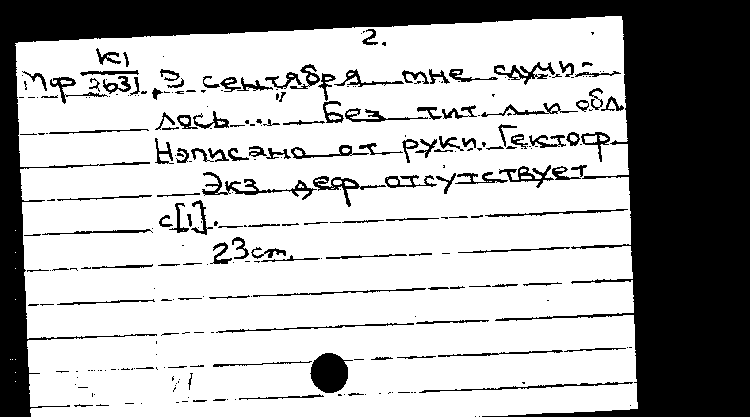 2.
К1
Мф 2631 „3 сентября мне случи-
лось ...". Без тит. л. и обл.
Написано от руки. Гектогр.
Экз. деф. отсутствует
с[1].
23 cm.